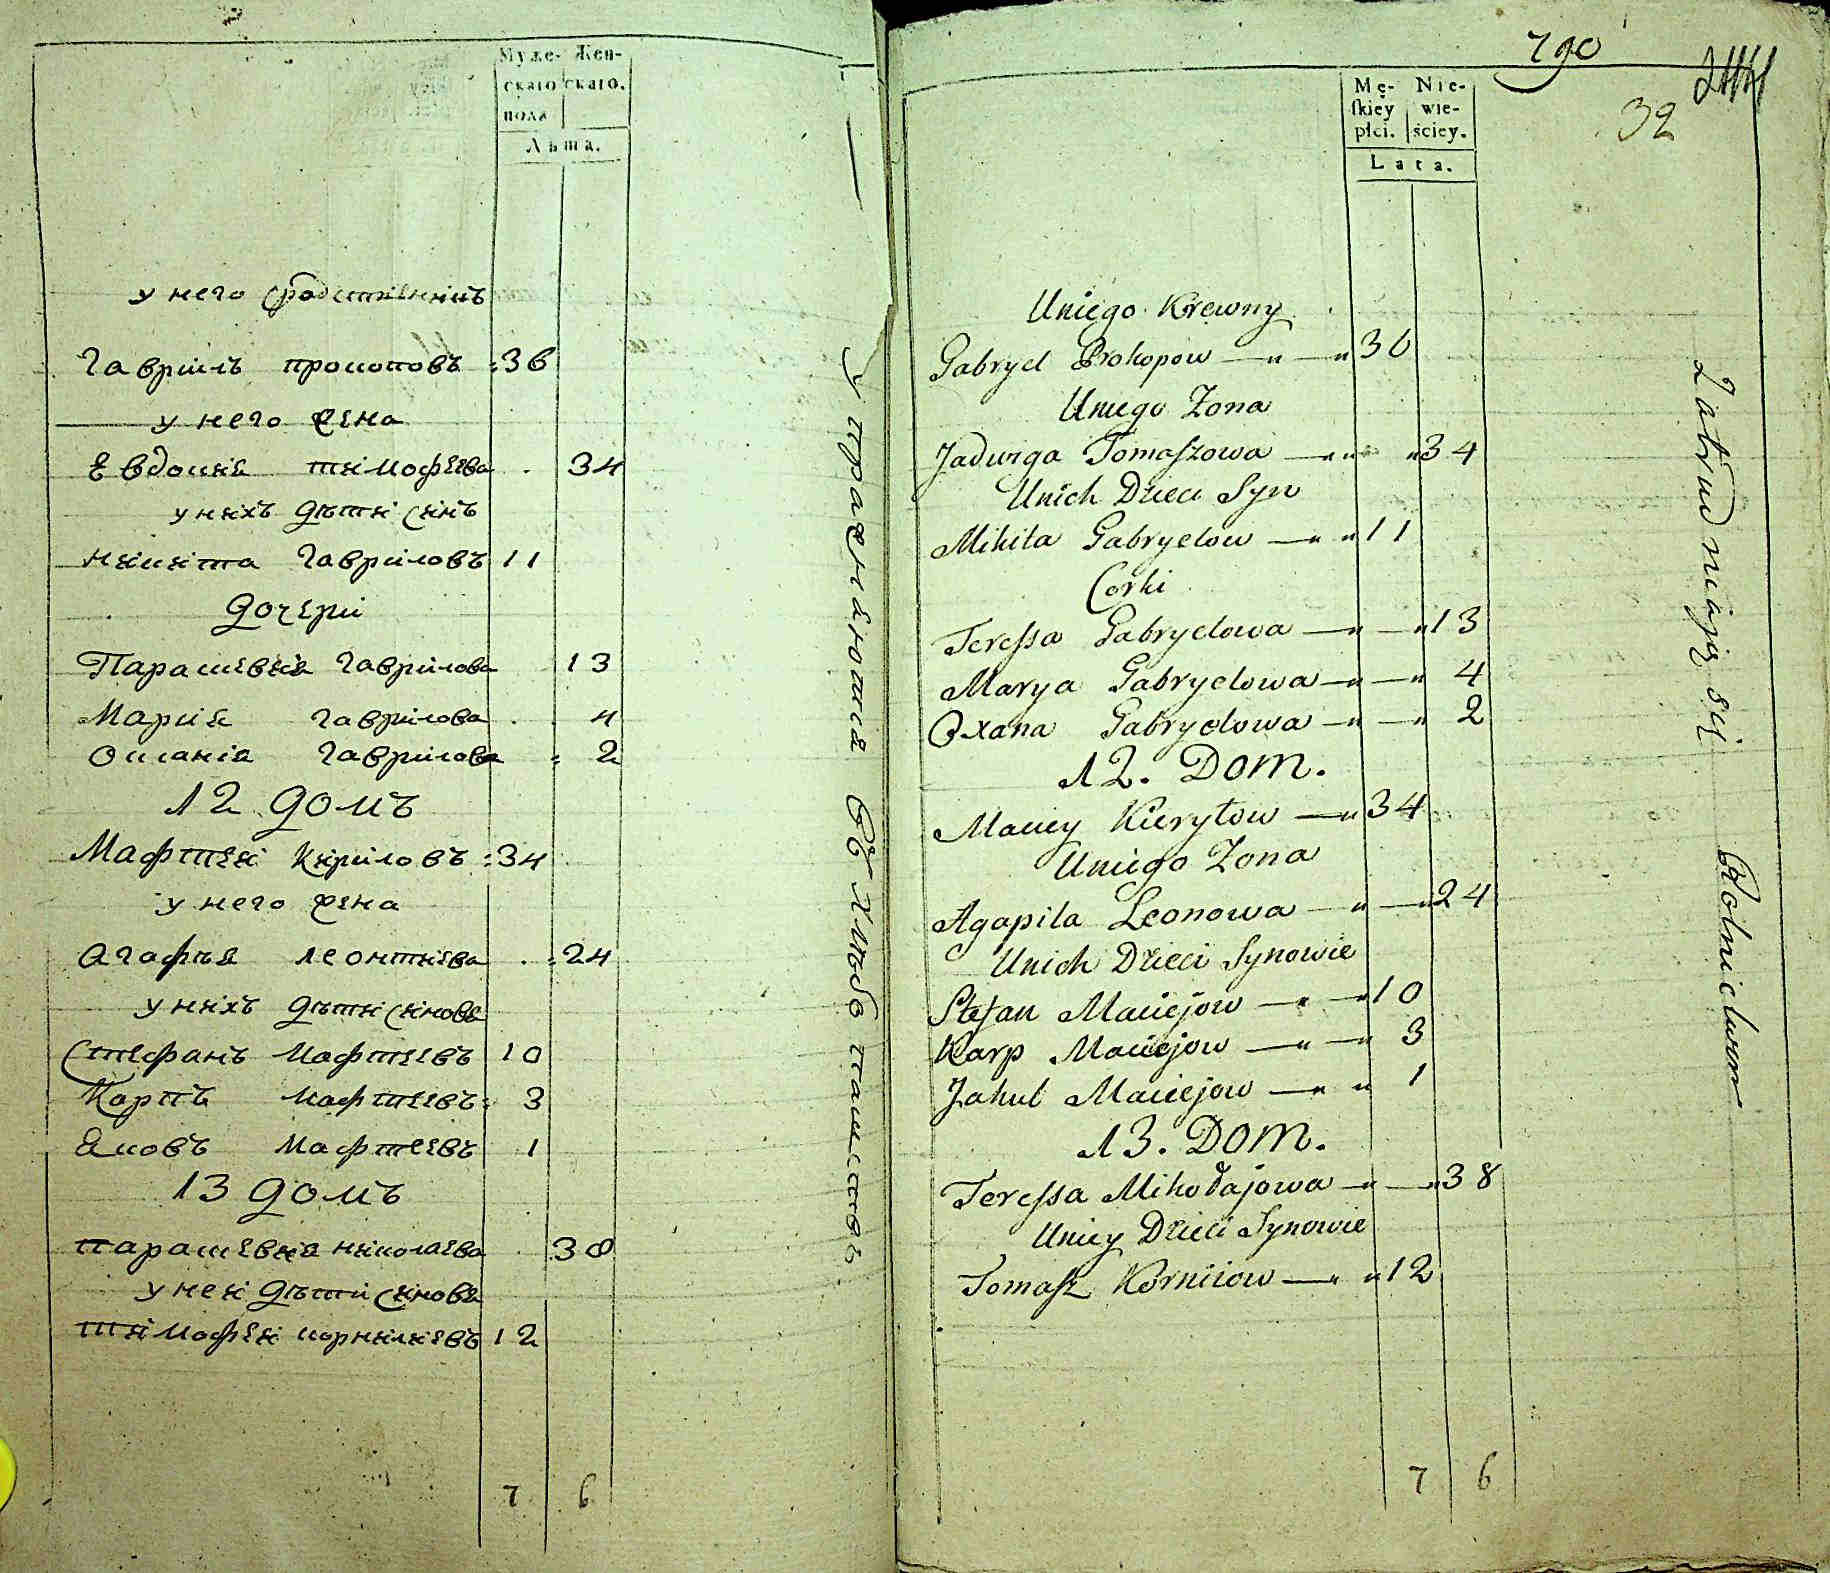 Муже- Жен-
скаго скаго.
пола
Лѣта.
у него сродственникъ
Гаврилъ Прокоповъ 36
у него жена
Евдокия Тимофеева 34
у нихъ дѣти синъ
Никита Гавриловъ 11
дочери
Парашевия Гаврилова 13
Мария Гаврилова 4
Оксания Гаврилова 2
12 домъ
Мафтей Кириловъ 34
у него жена
Агафья Леонтиева 24
у нихъ дѣти синове
Стефанъ Мафтеевъ 10
Карпъ Мафтеевъ 3
Яковъ Мафтеевъ 1
13 домъ
Парашевия Николаева 38
у ней дѣти синове
Тимофей Корнилиевъ 12
7 6
Упражнаютя въ хлѣбопашествѣ
790
32
Mę- Nie-
ſkiey wie-
płci. ściey.
Lata.
Uniego Krewny
Gabryel Prokopow 36
Uniego Zona
Jadwiga Tomaſzowa 34
Unich Dzieci Syn
Mikita Gabryelow 11
Corki
Tereſsa Gabryelowa 13
Marya Gabryelowa 4
Oxana Gabryelowa 2
12. Dom.
Maciey Kieryłow 34
Uniego Zona
Agapita Leonowa 24
Unich Dzieci Synowie
Stefan Maciejow 10
Karp Maciejow 3
Jakub Maciejow 1
13. Dom.
Tereſsa Mikołajowa 38
Uniey Dzieci Synowie
Tomaſz Korniiow 12
7 6
Zatrudniaią się Rolnictwem